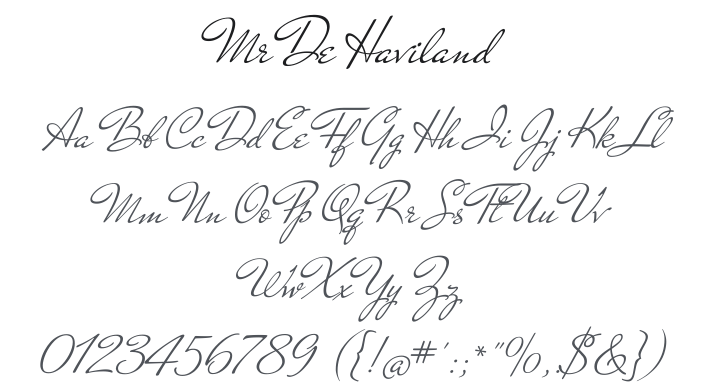 Mr De Haviland
Aa Bb Cc Dd Ee Ff Gg Hh Ii Jj Kk Ll
Mm Nn Oo Pp Qq Rr Ss Tt Uu Vv
Ww Xx Yy Zz
0123456789 ({!@#':;*"%,.$&})